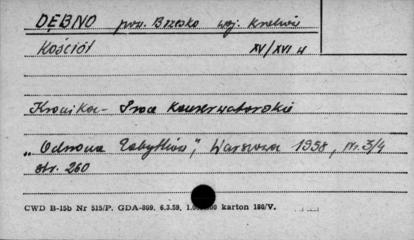 DĘBNO pow. Brzesko woj. Kraków
Kościół XV/XVI w
Kronika - Prace Konserwatorskie
„Ochrona Zabytków", Warszawa 1958, nr. 3/4
str. 260
CWD B-15b Nr 515/P. GDA-809. 6.3.59. karton 180/V.